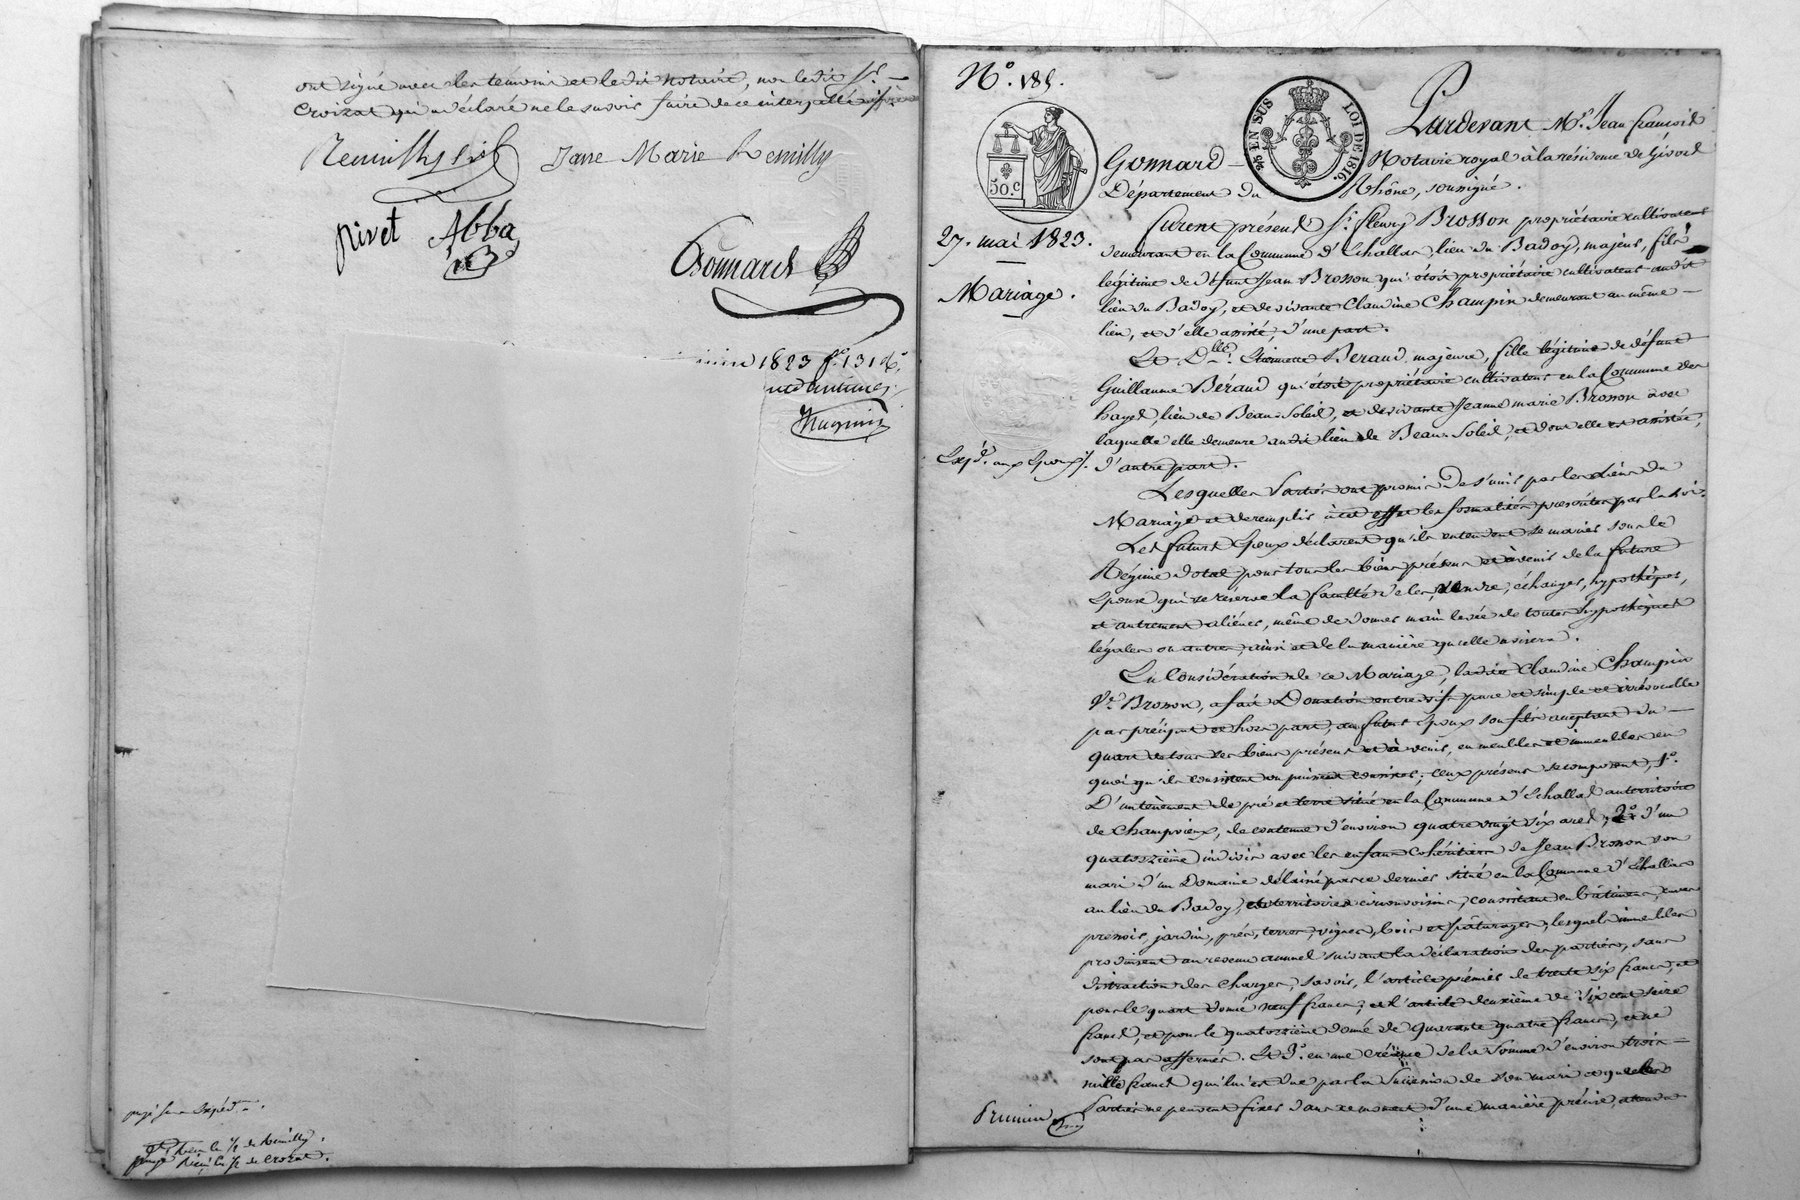 ont signé avec les témoins et le dit notaire, non ledit Sr
Croizat qui a déclaré ne le savoir faire de ce interpellé
Remilly
Jane Marie Remilly
pivet Abba
Gonnard
1823 fo. 131
payé sur Expéd.
Reçu le ½ de Remilly.
Reçu le ½ de Crozat.
No. 185.
50. c
EN SUS LOI DE 1816.
27. mai 1823.
Mariage.
Expéd. aux Epoux.
Pardevant Me. Jean françois
Gonnard Notaire royal à la résidence de Givors
Département du Rhône, soussigné.
furent présent Sr. fleury Brosson propriétaire cultivateur
demeurant en la Commune d'Echallas, lieu du Badoy, majeur, fils
légitime de défunt Jean Brosson qui étoit propriétaire cultivateur audit
lieu du Badoy, et de vivante Claudine Champin demeurant au même
lieu, et d'elle assisté, d'une part.
Et Dlle. Etiennette Beraud majeure, fille légitime de défunt
Guillaume Béraud qui étoit propriétaire cultivateur en la Commune des
hayes, lieu de Beau-Soleil, et de vivante Jeanne marie Brosson avec
laquelle elle demeure audit lieu de Beau-Soleil, et dont elle est assistée,
d'autre part.
Lesquelles Parties ont promis de s'unir par les Liens du
Mariage et de remplir à cet effet les formalités prescrites par la Loi.
Les futurs Epoux déclarent qu'ils entendent se marier sous le
Régime dotal pour tous les biens présens et à venir de la future
Epouse qui se réserve la faculté de les vendre, échanger, hypothéquer,
et autrement aliéner, même de donner main levée de toutes hypothèques
légales ou autres, ainsi et de la manière qu'elle avisera.
En Considération de ce Mariage, ladite Claudine Champin
Ve. Brosson, a fait Donation entre vifs pure et simple et irrévocable
par préciput et hors part, au futur Epoux son fils acceptant du
quart de tous ses biens présens et à venir, en meubles et immeubles en
quoi qu'ils consistent ou puissent consister; ceux présens se composent, 1o.
D'un tènement de pré et terre situé en la Commune d'Echallas au territoire
de Champvieux, de contenue d'environ quatre vingt six ares; 2o. d'un
quatorzième indivis avec les enfans cohéritiers de Jean Brosson son
mari d'un Domaine délaissé par ce dernier situé en la Commune d'Echallas
au lieu du Badoy, et territoires circonvoisins, consistant en bâtimens, cuves
pressoir, jardin, prés, terres, vignes, bois et pâturages, lesquels immeubles
produisent un revenu annuel suivant la déclaration des parties, sans
distraction des charges, savoir, l'article premier de trente six francs, et
pour le quart donné neuf francs; et l'article deuxième de six cent seize
francs, et pour le quatorzième donné de quarante quatre francs, et ne
sont pas affermés. Et 3o. en une créance de la Somme d'environ trois
mille francs qui lui est due par la Succession de son mari et que les
Parties ne peuvent fixer dans ce moment d'une manière précise, attendu